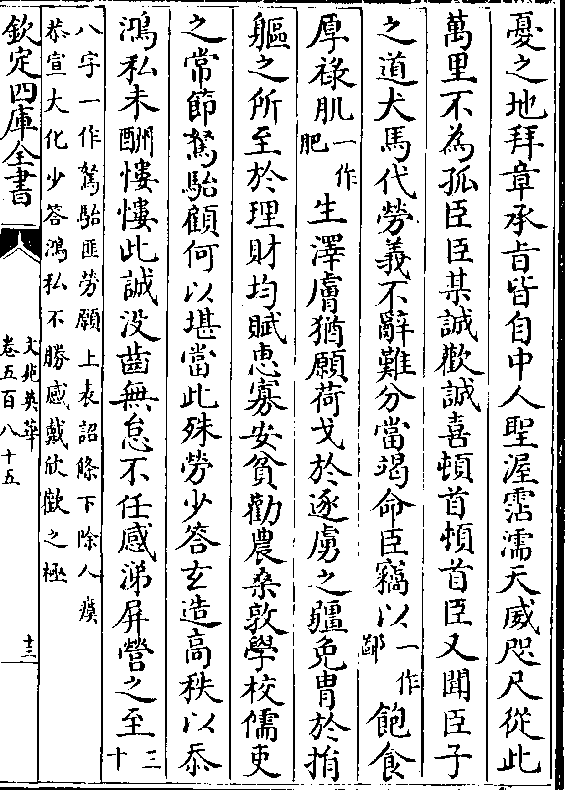 憂之地拜章承旨皆自中人聖渥霑濡天威咫尺從此
萬里不為孤臣臣某誠歡誠喜頓首頓首臣又聞臣子
之道犬馬代勞義不辭難分當竭命臣竊以一作鄙飽食
厚祿肌一作肥生澤膚猶願荷戈於逐虜之疆免胄於捐
軀之所至於理財均賦恵寡安貧勸農桑敦學校儒吏
之常節駑駘顧何以堪當此殊勞少答玄造高秩以忝
鴻私未酬悽悽此誠沒齒無怠不任感涕屏營之至三十
八字一作駑駘匪勞願上表詔條下除人瘼
恭宣大化少答鴻私不勝感戴欣歡之極
欽定四庫全書
文苑英華
卷五百八十五
十三